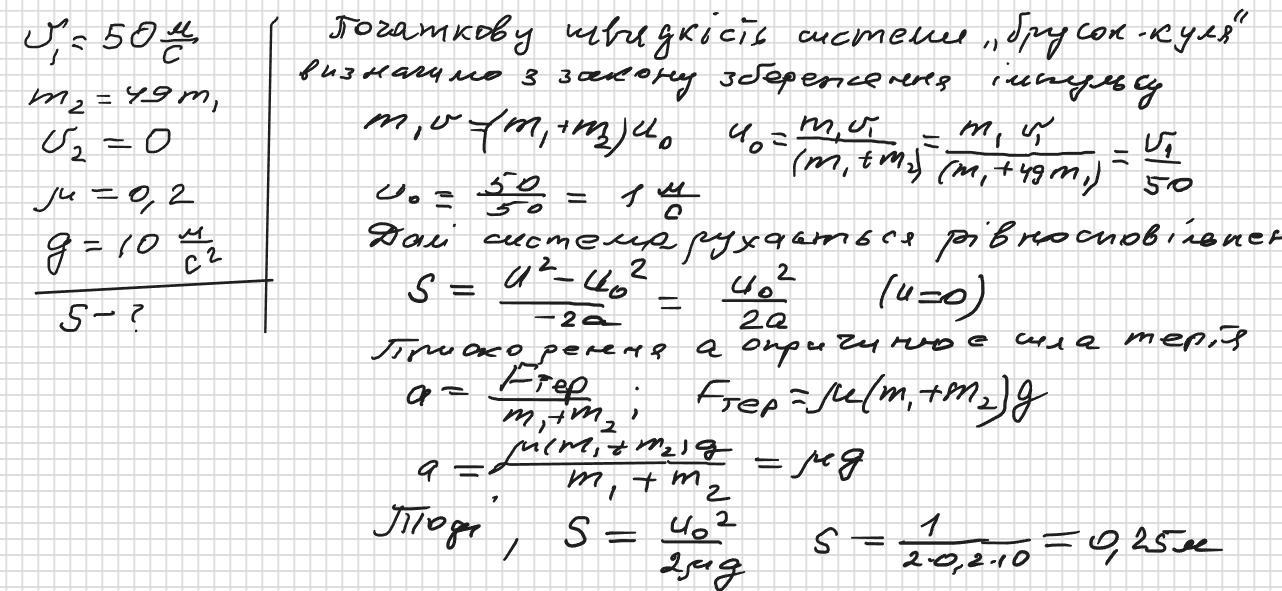 υ₁ = 50 м/с
m₂ = 49 m₁
υ₂ = 0
μ = 0,2
g = 10 м/с²
S - ?
Початкову швидкість системи „брусок-куля"
визначимо з закону збереження імпульсу
m₁υ = (m₁ + m₂)u₀ u₀ = m₁υ₁/(m₁ + m₂) = m₁υ₁/(m₁ + 49m₁) = υ₁/50
u₀ = 50/50 = 1 м/с
Далі система рухається рівносповільнен
S = (u² - u₀²)/(-2a) = u₀²/2a (u=0)
Прискорення a спричинює сила тертя
a = Fтер/(m₁+m₂); Fтер = μ(m₁+m₂)g
a = μ(m₁+m₂)g/(m₁+m₂) = μg
Тоді, S = u₀²/2μg S = 1/(2·0,2·10) = 0,25м